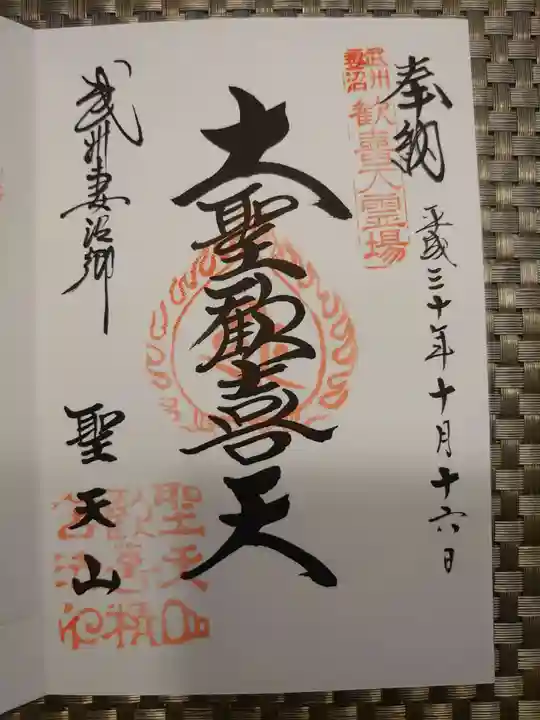 奉納
平成三十年十月十六日
武州
妻沼
歓喜天霊場
大聖歓喜天
武州妻沼郷
聖天山